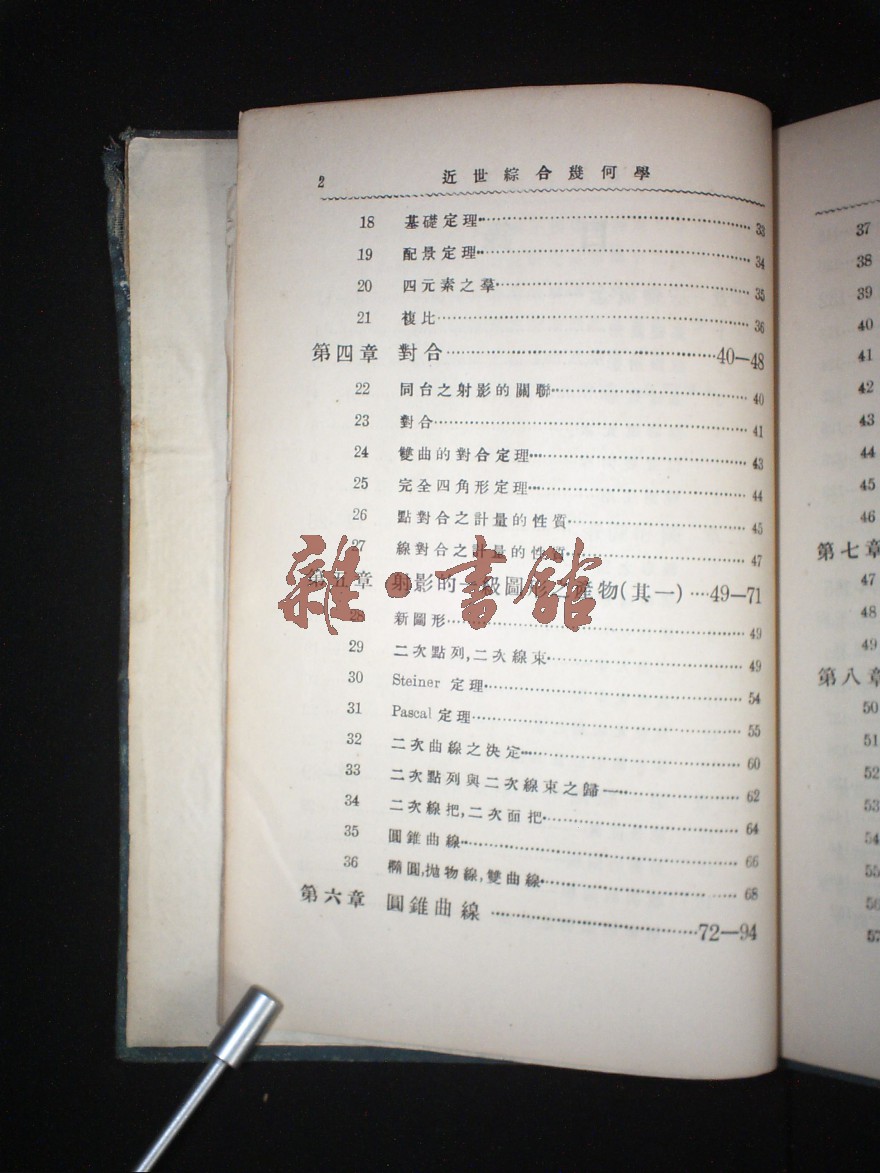 2 近世綜合幾何學
18 基礎定理 33
19 配景定理 34
20 四元素之羣 35
21 複比 36
第四章 對合 40—48
22 同台之射影的關聯 40
23 對合 41
24 雙曲的對合定理 43
25 完全四角形定理 44
26 點對合之計量的性質 45
27 線對合之計量的性質 47
第五章 射影的一級圖形之產物(其一) 49—71
28 新圖形 49
29 二次點列,二次線束 49
30 Steiner 定理 54
31 Pascal 定理 55
32 二次曲線之決定 60
33 二次點列與二次線束之歸一 62
34 二次線把,二次面把 64
35 圓錐曲線 66
36 橢圓,拋物線,雙曲線 68
第六章 圓錐曲線 72—94
雜·書館
37
38
39
40
41
42
43
44
45
46
第七章
47
48
49
第八章
50
51
52
53
54
55
56
57